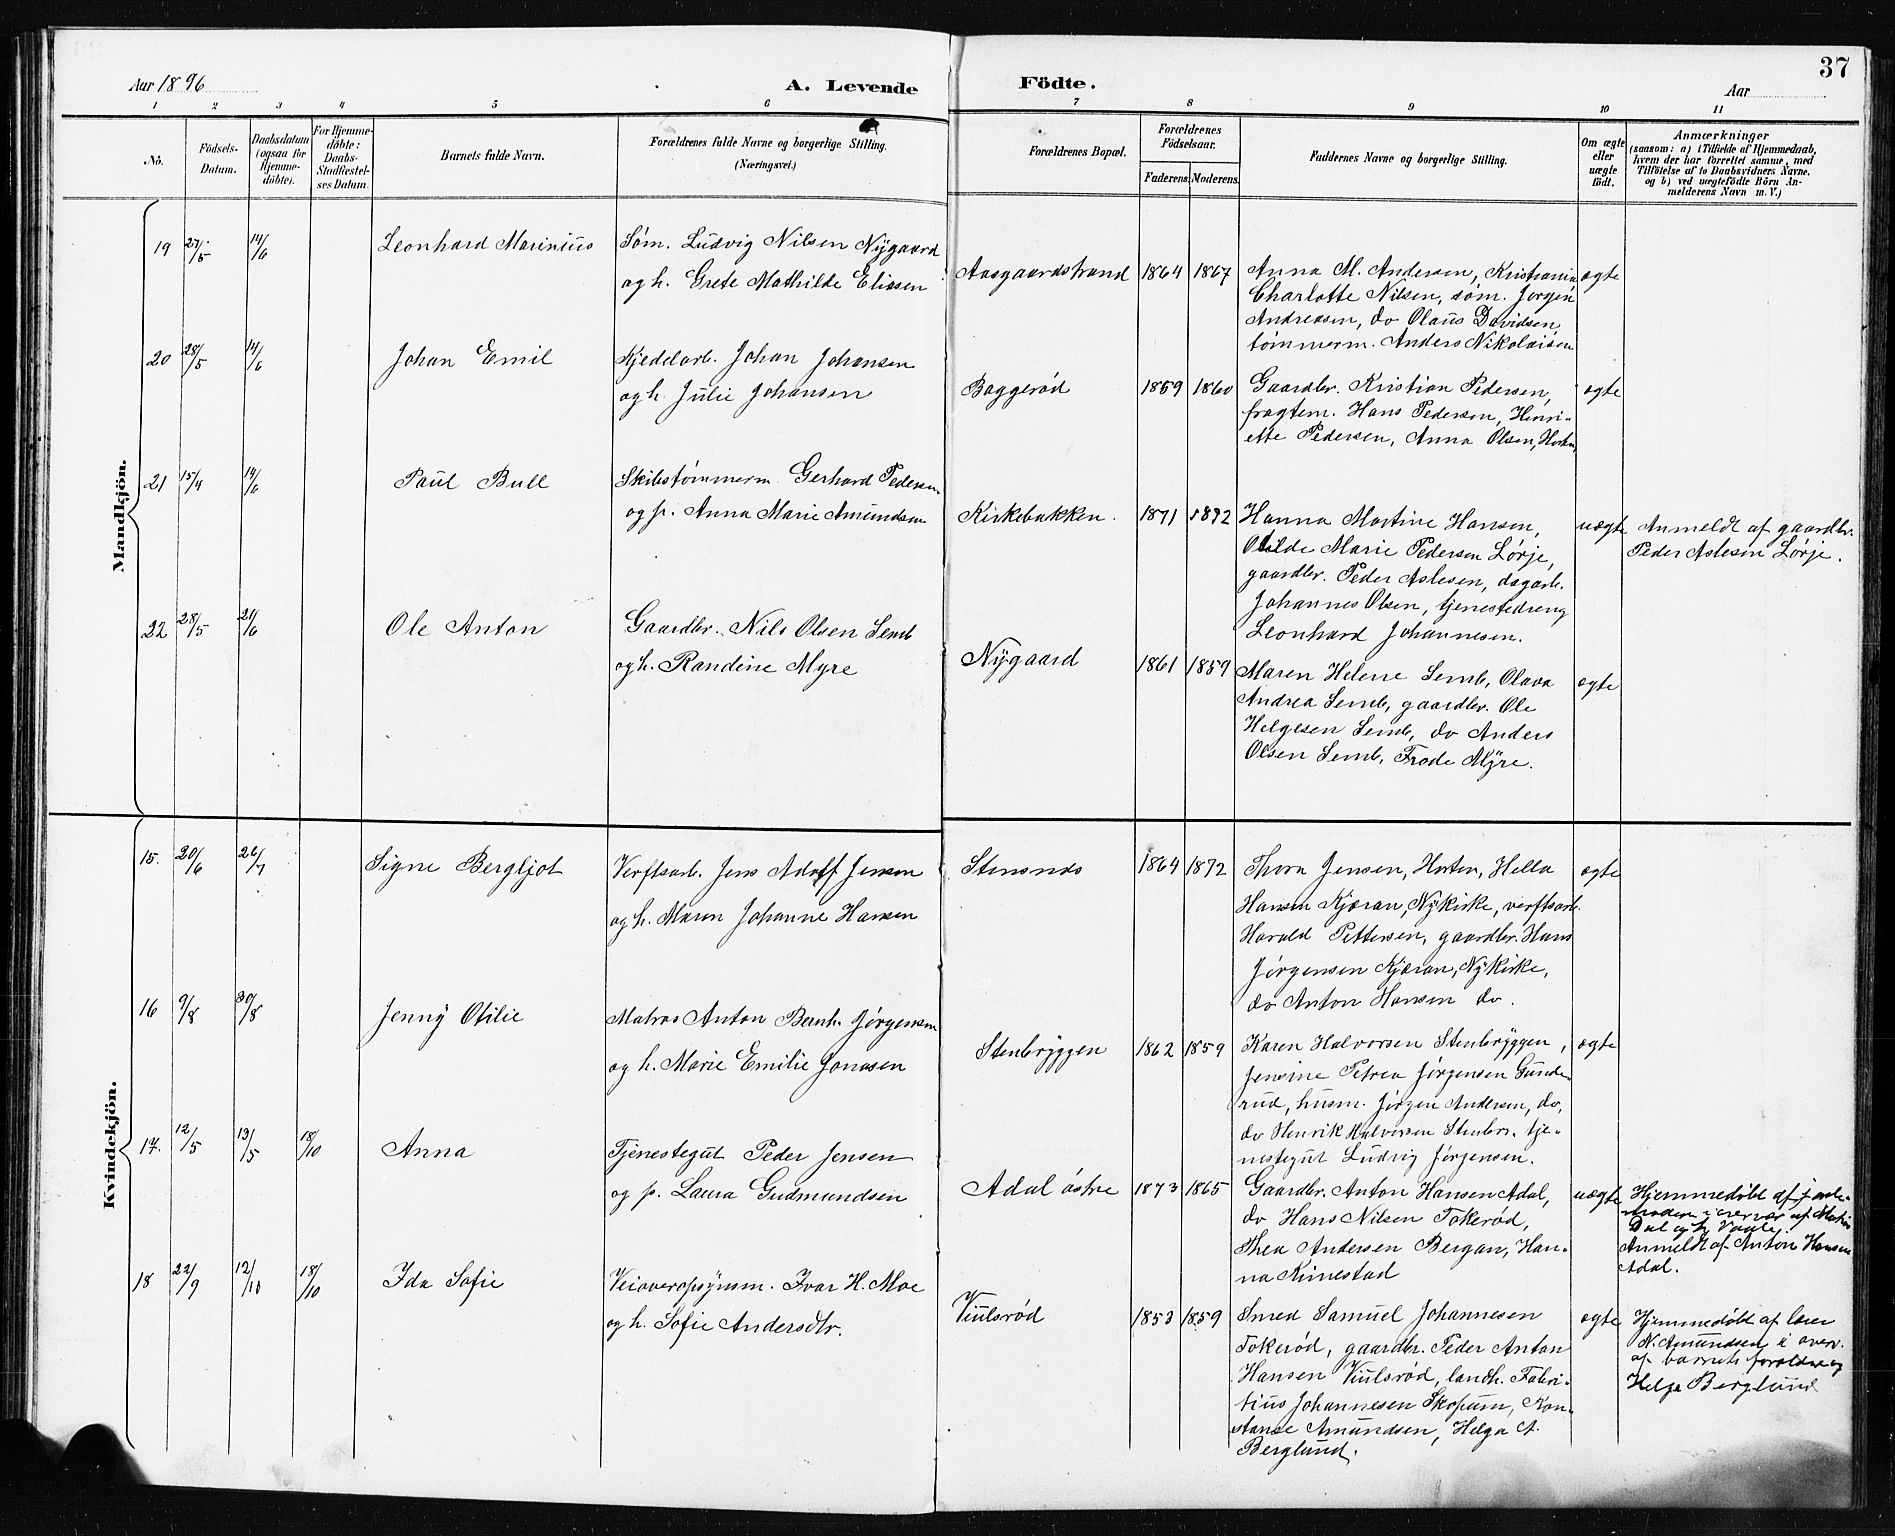 37
Aar 1896
A. Levende
Födte.
Aar
1
2
3
4
5
6
7
8
9
10
11
No.
Födsels-
Datum.
Daabsdatum
(ogsaa for
Hjemme-
døbte).
For Hjemme-
döbte:
Daabs-
Stadfæstel-
ses Datum.
Barnets fulde Navn.
Forældrenes fulde Navne og borgerlige Stilling.
(Næringsvei.)
Forældrenes Bopæl.
Forældrenes
Födselsaar.
Faderens.
Moderens.
Faddernes Navne og borgerlige Stilling.
Om ægte
eller
uægte
födt.
Anmærkninger
(saasom: a) i Tilfælde af Hjemmedaab,
hvem der har forrettet samme, med
Tilføielse af to Daabsvidners Navne,
og b) ved uægtefödte Börn An-
melderens Navn m. V.)
Mandkjön.
19 27/5 14/6 Leonhard Marinius
Søm. Ludvig Nilsen Nygaard
og h. Grete Mathilde Eliasen
Aasgaardstrand 1864 1867
Anna M. Andersen, Kristiania
Charlotte Nilsen, søm. Jørgen
Andreasen, do Olaus Davidsen,
tømmerm. Anders Nikolaisen
ægte
20 28/5 14/6 Johan Emil
Kjeddarb. Johan Johansen
og h. Julie Johansen
Baggerød 1859 1860
Gaardbr. Kristian Pedersen,
fragtem. Hans Pedersen, Henri-
ette Pedersen, Anna Olsen, Horten,
ægte
21 15/4 14/6 Paul Bull
Skibstømmerm. Gerhard Pedersen
og p. Anna Marie Amundsen
Kirkebakken. 1871 1872
Hanna Martine Hansen,
Otilde Marie Pedersen Lørje,
gaardbr. Peder Aslesen, dagarb.
Johannes Olsen, tjenestedreng
Leonhard Johannesen.
uægte
Anmeldt af gaardbr.
Peder Aslesen Lørje.
22 28/5 21/6 Ole Anton
Gaardbr. Nils Olsen Semb
og h. Randine Myre
Nygaard 1861 1859
Maren Helene Semb, Olava
Andrea Semb, gaardbr. Ole
Helgesen Semb, do Anders
Olsen Semb, Frode Myre.
ægte
Kvindekjön.
15. 20/6 26/7 Signe Bergljot
Verftsarb. Jens Adolf Jensen
og h. Maren Johanne Hansen
Stensnes 1864 1872
Thora Jensen, Horten, Hella
Hansen Kjæran, Nykirke, verftsarb.
Harald Pettersen, gaardbr. Hans
Jørgensen Kjæran, Nykirke,
do Anton Hansen do.
ægte
16 9/8 30/8 Jenny Otilie
Matros Anton Bernh. Jørgensen
og h. Marie Emilie Jonasen
Stenbryggen 1862 1859
Karen Halvorsen Stenbryggen,
Jensine Petrea Jørgensen Gunde-
rud, husm. Jørgen Andersen, do,
do Henrik Halvorsen Stenbr. tje-
nestegut Ludvig Jørgensen.
ægte
17. 12/5 13/5 18/10 Anna
Tjenestegut Peder Jensen
og p. Laura Gudmundsen
Adal østre 1873 1865
Gaardbr. Anton Hansen Adal,
do Hans Nilsen Tokerød,
Thea Andersen Bergan, Han-
na Kimestad
uægte
Hjemmedøbt af jorde-
moderen i overvær af
Dal og
Anmeldt af Anton Hansen
Adal.
18 22/9 12/10 18/10 Ida Sofie
Veioveropsynsm. Ivar H. Moe
og h. Sofie Andersdtr.
Viulsrød 1853 1859
Smed Samuel Johannesen
Tokerød, gaardbr. Peder Anton
Hansen Viulsrød, landh. Fabri-
tius Johannesen Skopum, Kon-
stanse Amundsen, Helga A.
Berglund.
ægte
Hjemmedøbt af lærer
N. Amundsen i overv.
af barnets forældre og
Helga Berglund